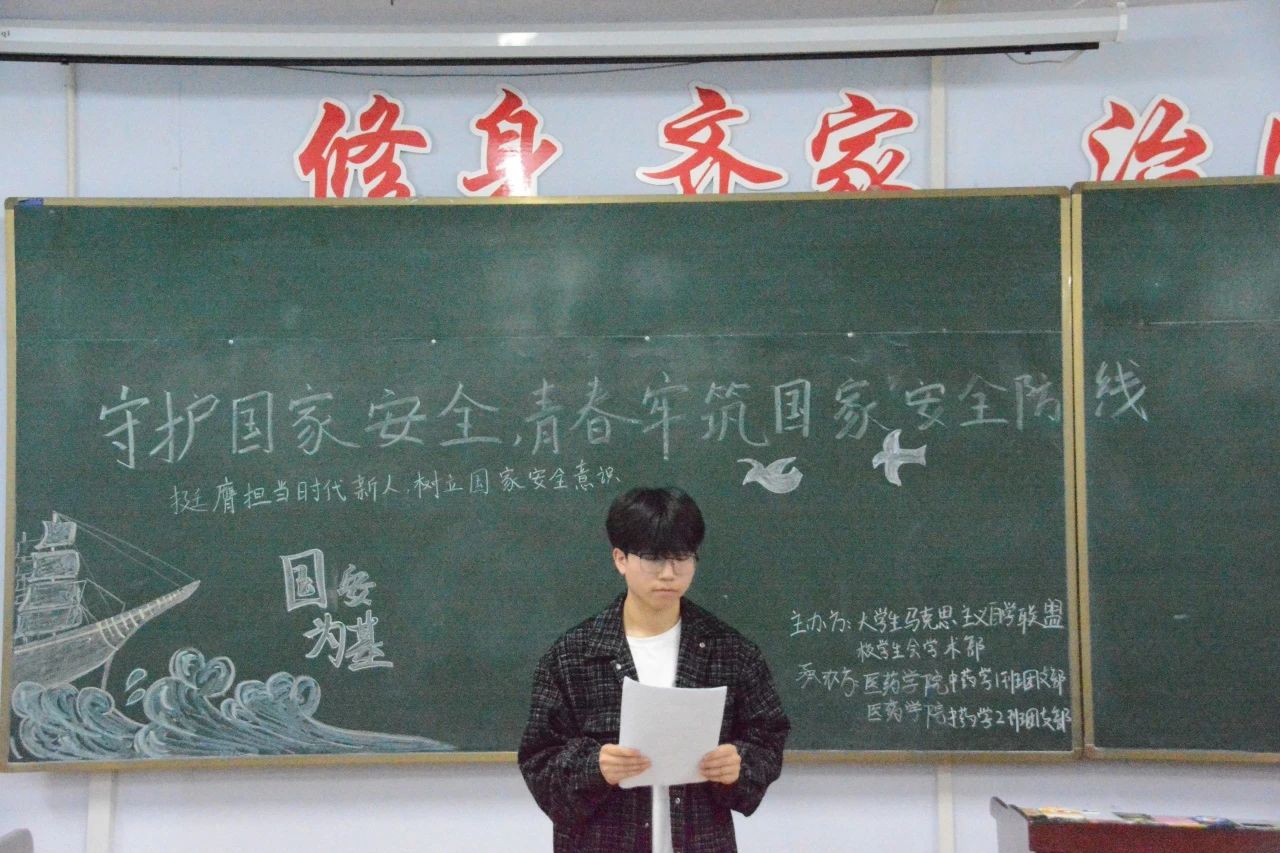 修身 齐家 治国
守护国家安全,青春牢筑国家安全防线
挺膺担当时代新人,树立国家安全意识
国安
为基
主办方:大学生马克思主义自学联盟
校学生会学术部
承办方:医药学院中药学1班团支部
医药学院中药学2班团支部